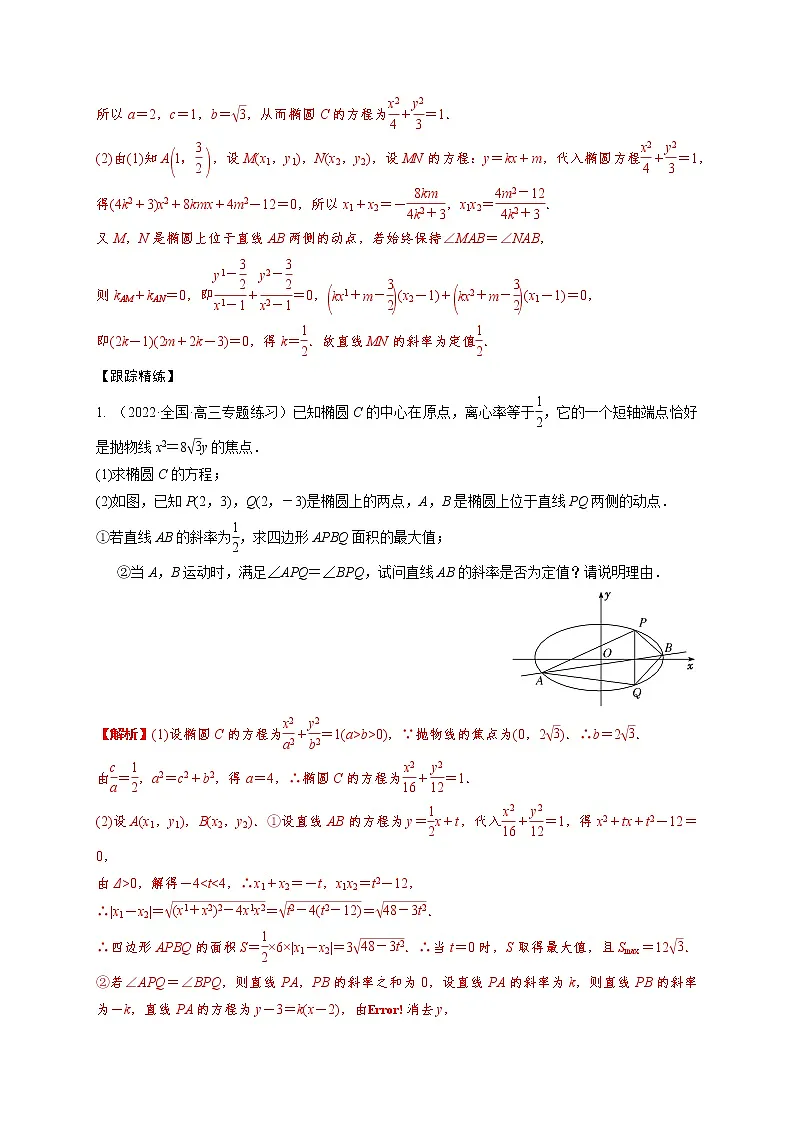 所以 a=2，c=1，b=√3，从而椭圆 C 的方程为x2/4+y2/3=1．
(2)由(1)知 A(1，3/2)，设 M(x1，y1)，N(x2，y2)，设 MN 的方程：y=kx+m，代入椭圆方程x2/4+y2/3=1，
得(4k2+3)x2+8kmx+4m2-12=0，所以 x1+x2=-8km/4k2+3，x1x2=4m2-12/4k2+3．
又 M，N 是椭圆上位于直线 AB 两侧的动点，若始终保持∠MAB=∠NAB，
则 kAM+kAN=0，即y1-3/2/x1-1+y2-3/2/x2-1=0，(kx1+m-3/2)(x2-1)+(kx2+m-3/2)(x1-1)=0，
即(2k-1)(2m+2k-3)=0，得 k=1/2．故直线 MN 的斜率为定值1/2．
【跟踪精练】
1. （2022·全国·高三专题练习）已知椭圆 C 的中心在原点，离心率等于1/2，它的一个短轴端点恰好
是抛物线 x2=8√3y 的焦点．
(1)求椭圆 C 的方程；
(2)如图，已知 P(2，3)，Q(2，-3)是椭圆上的两点，A，B 是椭圆上位于直线 PQ 两侧的动点．
①若直线 AB 的斜率为1/2，求四边形 APBQ 面积的最大值；
②当 A，B 运动时，满足∠APQ=∠BPQ，试问直线 AB 的斜率是否为定值？请说明理由．
y
P
O
B
x
A
Q
【解析】(1)设椭圆 C 的方程为x2/a2+y2/b2=1(a>b>0)，∵抛物线的焦点为(0，2√3)．∴b=2√3．
由c/a=1/2，a2=c2+b2，得 a=4，∴椭圆 C 的方程为x2/16+y2/12=1．
(2)设 A(x1，y1)，B(x2，y2)．①设直线 AB 的方程为 y=1/2x+t，代入x2/16+y2/12=1，得 x2+tx+t2-12=
0，
由 Δ>0，解得-4<t<4，∴x1+x2=-t，x1x2=t2-12，
∴|x1-x2|=√(x1+x2)2-4x1x2=√t2-4(t2-12)=√48-3t2．
∴四边形 APBQ 的面积 S=1/2×6×|x1-x2|=3√48-3t2．∴当 t=0 时，S 取得最大值，且 Smax=12√3．
②若∠APQ=∠BPQ，则直线 PA，PB 的斜率之和为 0，设直线 PA 的斜率为 k，则直线 PB 的斜率
为-k，直线 PA 的方程为 y-3=k(x-2)，由Error! 消去 y，